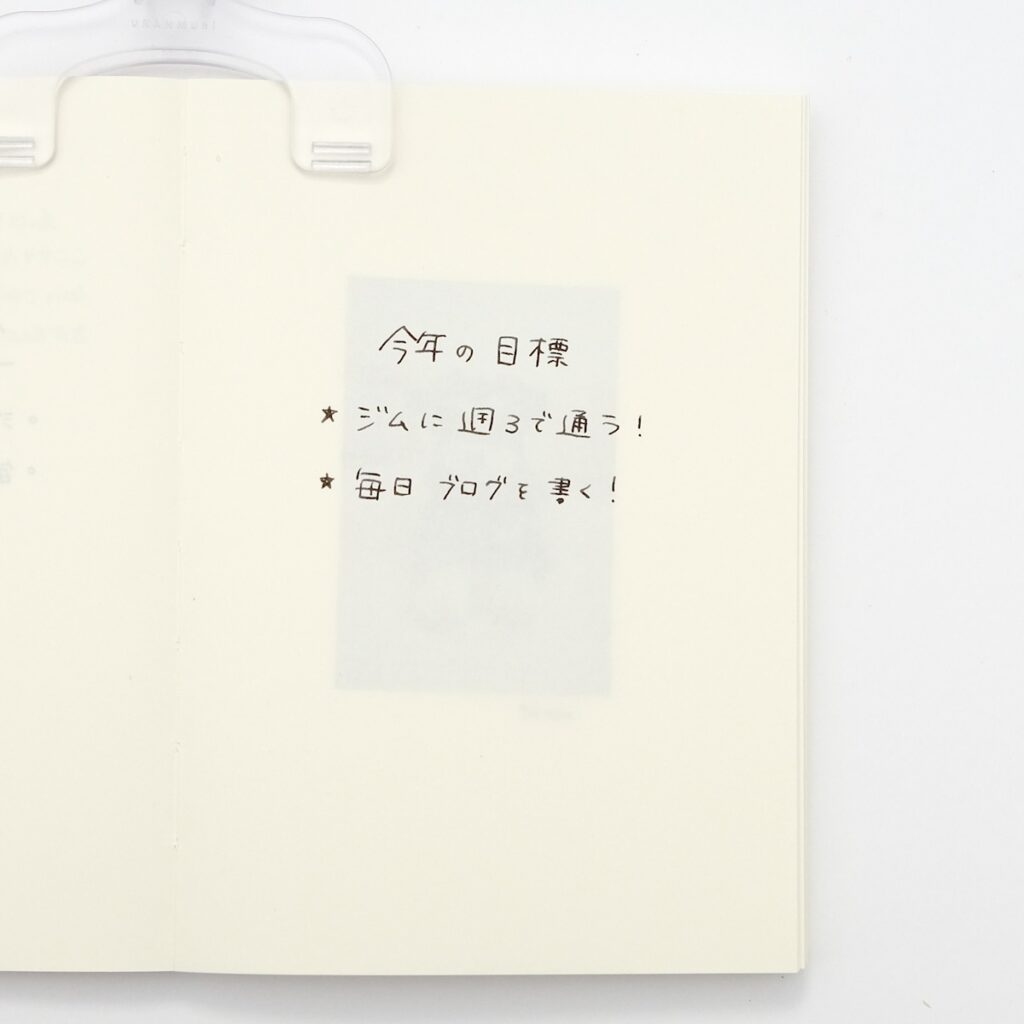 今年の目標
★ ジムに週3で通う!
★ 毎日ブログを書く!